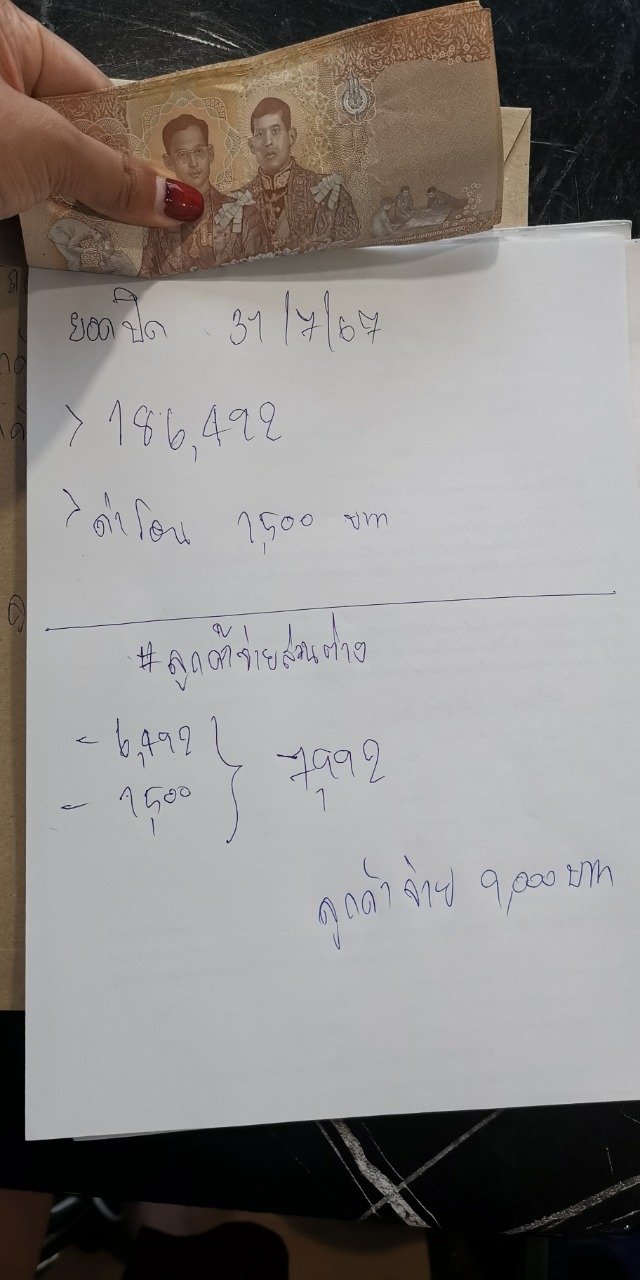 ยอดปิด 31/7/67
> 186,492
> ค่าโอน 1,500 บาท
#ลูกค้าจ่ายส่วนต่าง
- 6,492
- 1,500
} 7,992
ลูกค้า จ่าย 9,000 บาท